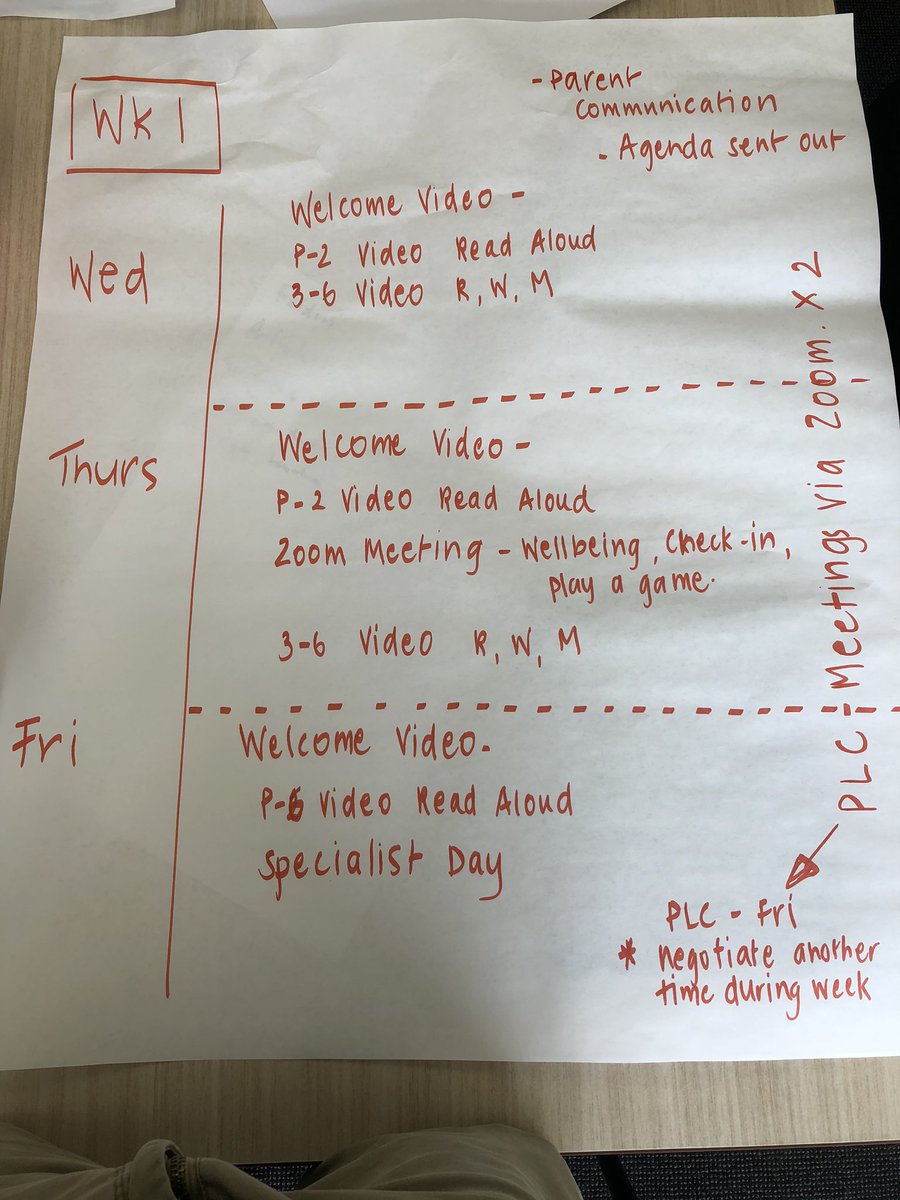 Wk 1
- Parent
communication
- Agenda sent out
Wed
Welcome Video -
P-2 Video Read Aloud
3-6 Video R, W, M
Thurs
Welcome Video -
P-2 Video Read Aloud
Zoom Meeting - Wellbeing, Check-in,
play a game.
3-6 Video R, W, M
Fri
Welcome Video.
P-6 Video Read Aloud
Specialist Day
PLC - Meetings via zoom. x 2
PLC - Fri
* negotiate another
time during week